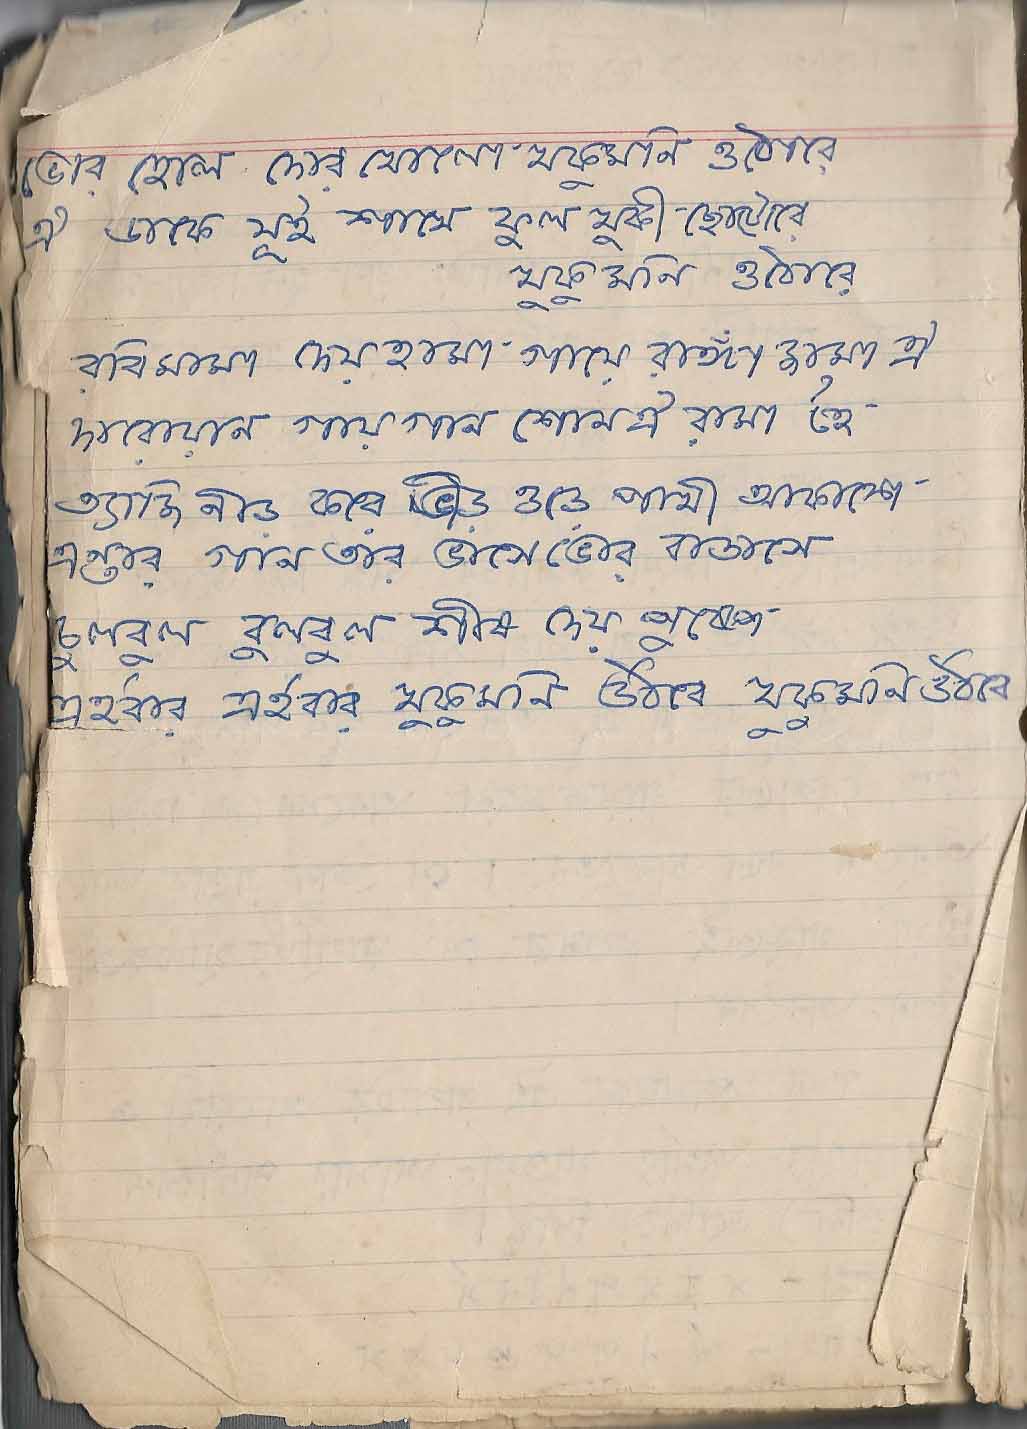 ভোর হোল দোর খোলো খুকুমনি ওঠোরে
ঐ ডাকে যূই শাখে ফুল খুকী ছোটোরে
খুকুমনি ওঠোরে
রবি মামা দেয় হামা গায়ে রাঙা জামা ঐ
দারোয়ান গায় গান শোন ঐ রামা হৈ
ত্যাজি নীড় করে ভীড় ওড়ে পাখী আকাশে
এন্তার গান তার ভাসে ভোর বাতাসে
চুলবুল বুলবুল শীষ দেয় পুষ্পে
এইবার এইবার খুকুমনি উঠবে খুকুমনি উঠবে